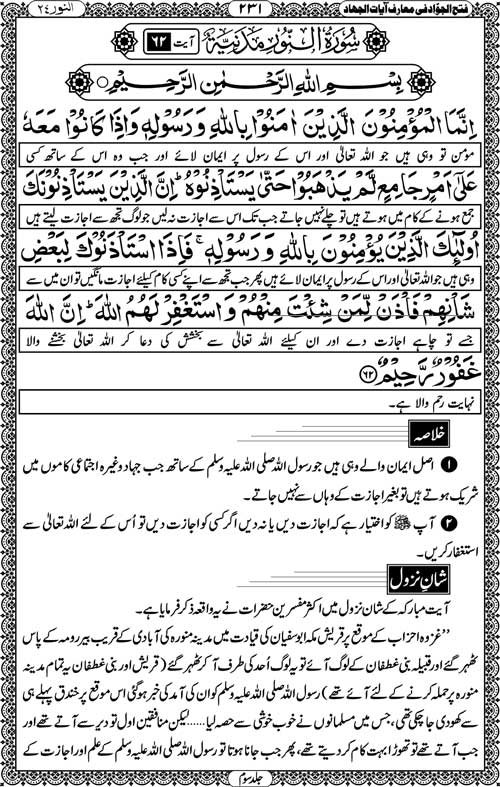 النور ۲۴
۲۳۱
فتح الجوّاد فی معارف آیات الجهاد
سُوْرَةُ النُّوْرِ مَدَنِيَّةٌ آیت ۶۲
بِسْمِ اللهِ الرَّحْمٰنِ الرَّحِيْمِ
اِنَّمَا الْمُؤْمِنُوْنَ الَّذِيْنَ اٰمَنُوْا بِاللهِ وَرَسُوْلِهٖ وَاِذَا كَانُوْا مَعَهٗ
مومن تو وہی ہیں جو اللہ تعالیٰ اور اس کے رسول پر ایمان لائے اور جب وہ اس کے ساتھ کسی
عَلٰٓى اَمْرٍ جَامِعٍ لَّمْ يَذْهَبُوْا حَتّٰى يَسْتَاْذِنُوْهُ ؕ اِنَّ الَّذِيْنَ يَسْتَاْذِنُوْنَكَ
جمع ہونے کے کام میں ہوتے ہیں تو چلے نہیں جاتے جب تک اس سے اجازت نہ لیں جو لوگ تجھ سے اجازت لیتے ہیں
اُولٰٓئِكَ الَّذِيْنَ يُؤْمِنُوْنَ بِاللهِ وَرَسُوْلِهٖ ۚ فَاِذَا اسْتَاْذَنُوْكَ لِبَعْضِ
وہی ہیں جو اللہ تعالیٰ اور اس کے رسول پر ایمان لائے ہیں پھر جب تجھ سے اپنے کسی کام کیلئے اجازت مانگیں تو ان میں سے
شَاْنِهِمْ فَاْذَنْ لِّمَنْ شِئْتَ مِنْهُمْ وَاسْتَغْفِرْ لَهُمُ اللهَ ؕ اِنَّ اللهَ
جسے تو چاہے اجازت دے اور ان کیلئے اللہ تعالیٰ سے بخشش کی دعا کر اللہ تعالیٰ بخشنے والا
غَفُوْرٌ رَّحِيْمٌ ۶۲
نہایت رحم والا ہے۔
خلاصہ
۱ اصل ایمان والے وہی ہیں جو رسول اللہ صلی اللہ علیہ وسلم کے ساتھ جب جہاد وغیرہ اجتماعی کاموں میں
شریک ہوتے ہیں تو بغیر اجازت کے وہاں سے نہیں جاتے۔
۲ آپ ﷺ کو اختیار ہے کہ اجازت دیں یا نہ دیں اگر کسی کو اجازت دیں تو اُس کے لئے اللہ تعالیٰ سے
استغفار کریں۔
شانِ نزول
آیت مبارکہ کے شان نزول میں اکثر مفسرین حضرات نے یہ واقعہ ذکر فرمایا ہے۔
’’غزوہ احزاب کے موقع پر قریش مکہ ابوسفیان کی قیادت میں مدینہ منورہ کی آبادی کے قریب بیر رومہ کے پاس
ٹھہر گئے اور قبیلہ بنی غطفان کے لوگ آئے تو یہ لوگ اُحد کی طرف آ کر ٹھہر گئے (قریش اور بنی غطفان یہ تمام مدینہ
منورہ پر حملہ کرنے کے لئے آئے تھے) رسول اللہ صلی اللہ علیہ وسلم کو ان کی آمد کی خبر ہو گئی اس موقع پر خندق پہلے ہی
سے کھودی جا چکی تھی، جس میں مسلمانوں نے خوب خوشی سے حصہ لیا......لیکن منافقین اول تو دیر سے آتے تھے اور
جب آتے تھے تو تھوڑا بہت کام کر دیتے تھے، پھر جب جانا ہوتا تو رسول اللہ صلی اللہ علیہ وسلم کے علم اور اجازت کے
جلد سوم